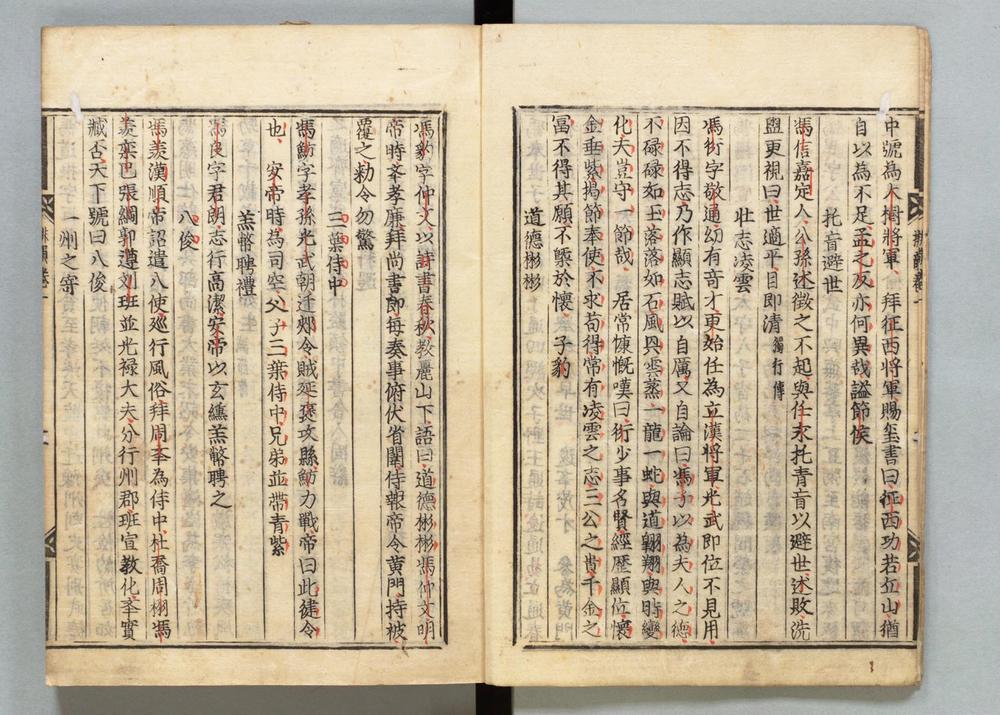 中號為大樹將軍拜征西將軍賜璽書曰征西功若丘山猶
自以為不足孟之反亦何異哉謚節侯
托盲避世
馮信嘉定人公孫述徵之不起與任末托青盲以避世述敗洗
盥更視曰世適平目即清 獨行傳
壯志凌雲
馮衍字敬通幼有奇才更始任為立漢將軍光武即位不見用
因不得志乃作顯志賦以自厲又自論曰馮子以為夫人之德
不碌碌如玉落落如石風興雲蒸一龍一蛇與道翱翔與時變
化夫豈守一節哉 居常慷慨嘆曰衍少事名賢經歷顯位懷
金垂紫揭節奉使不求苟得常有凌雲之志三公之貴千金之
富不得其願不槩於懷 子豹
道德彬彬
馮豹字仲文以詩書春秋教麗山下語曰道德彬彬馮仲文明
帝時孝廉拜尚書郎每奏事俯伏省閤侍報帝令黃門持被
覆之勑令勿驚
三葉侍中
馮魴字孝孫光武朝迁郟令賊延褒攻縣魴力戰帝曰此徤令
也 安帝時為司空父子三葉侍中兄弟並帶青紫
羔幣聘禮
馮良字君朗志行高潔安帝以玄纁羔幣聘之
八俊
馮羨漢順帝詔遣八使廵行風俗拜周舉為侍中杜喬周栩馮
羨欒巴張綱郭遵刘班並光禄大夫分行州郡班宣教化舉實
臧否天下號曰八俊
一州之寄